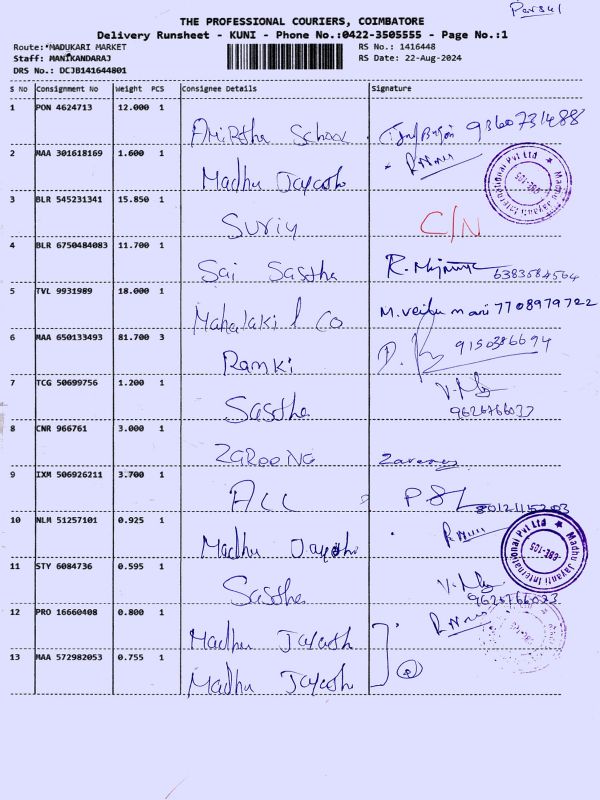 Parsul
THE PROFESSIONAL COURIERS, COIMBATORE
Delivery Runsheet - KUNI - Phone No.:0422-3505555 - Page No.:1
Route:*MADUKARI MARKET RS No.: 1416448
Staff: MANIKANDARAJ RS Date: 22-Aug-2024
DRS No.: DCJB141644801
S No Consignment No Weight PCS Consignee Details Signature
1 PON 4624713 12.000 1 9360731488
School
2 MAA 301618169 1.600 1
Madhu Jayanth
Madhu Jayanti International Pvt Ltd
CBE-105
3 BLR 545231341 15.850 1
Suriy C/N
4 BLR 6750484083 11.700 1
Sai Sastha R. 6383584564
5 TVL 9931989 18.000 1
Mahalaki & Co M.veilu mari 7708979722
6 MAA 650133493 81.700 3
Ramki 9150386694
7 TCG 50699756 1.200 1
Sastha 9626766033
8 CNR 966761 3.000 1
ZaRooNG
9 IXM 506926211 3.700 1
ACC
10 NLM 51257101 0.925 1
Madhu Jayanth
Madhu Jayanti International Pvt Ltd
CBE-105
11 STY 6084736 0.595 1
Sastha 9626766033
12 PRO 16660408 0.800 1
Madhu Jayanth
13 MAA 572982053 0.755 1
Madhu Jayanth